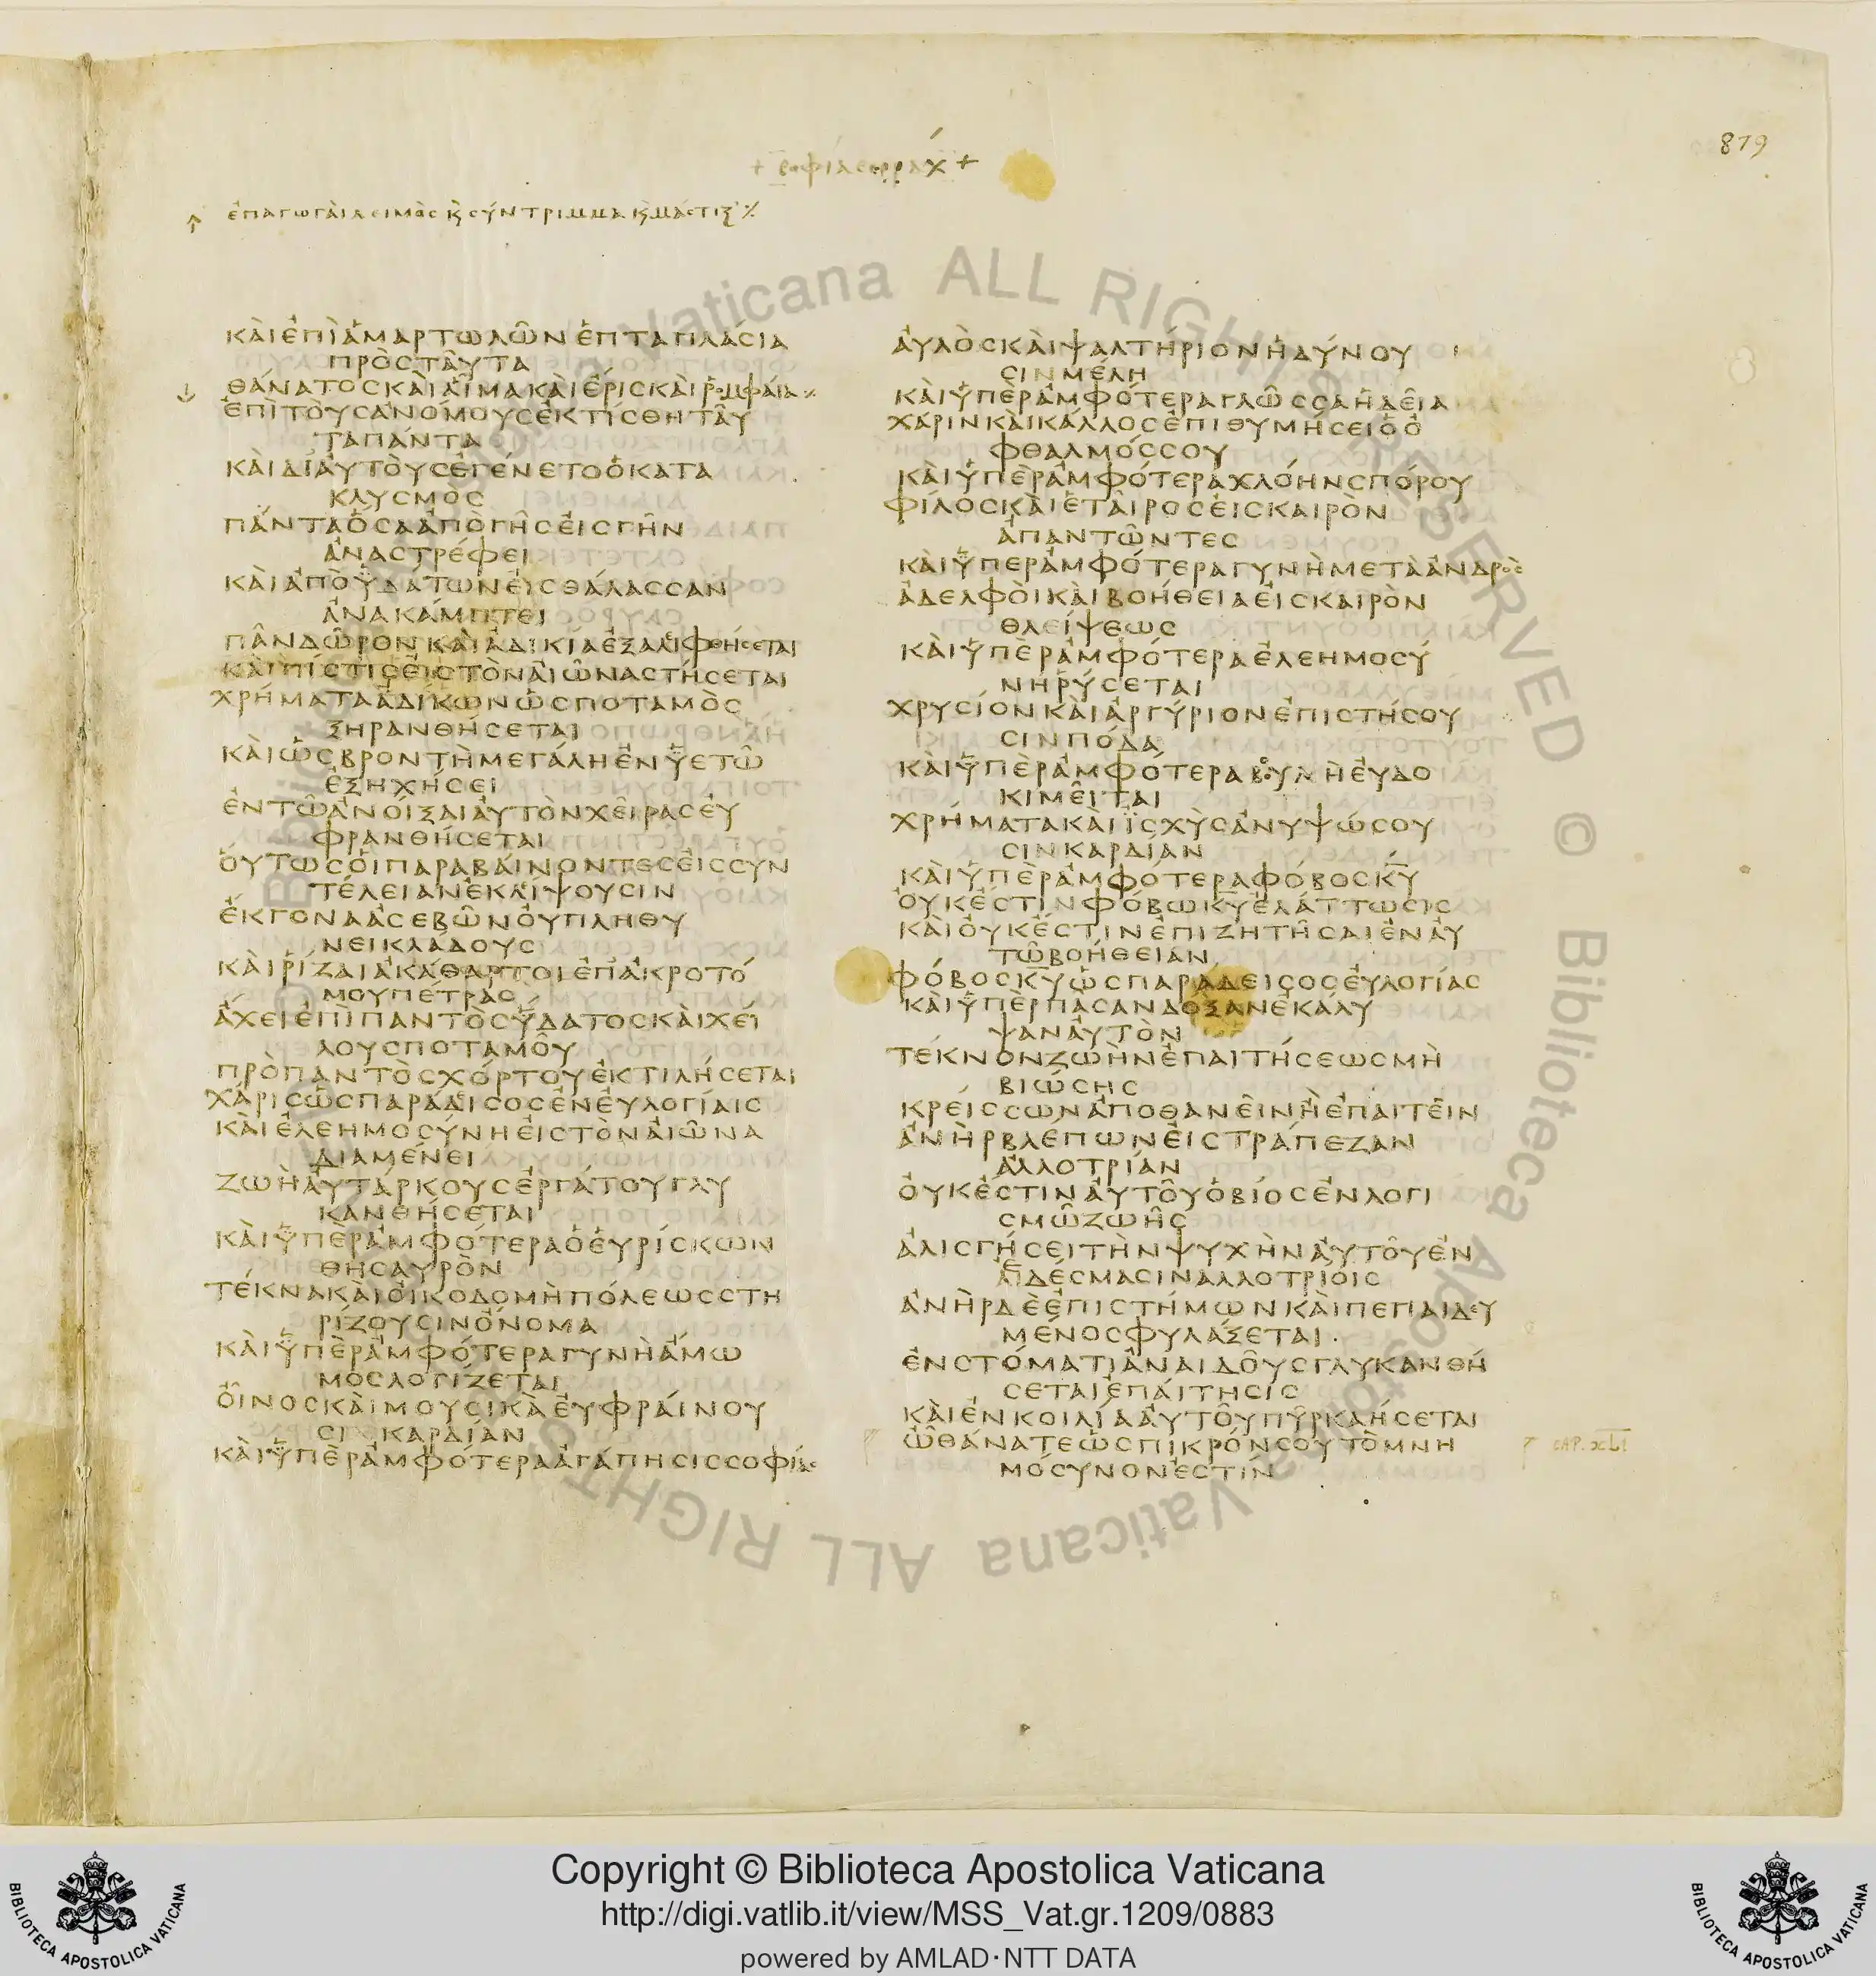 879
+ σοφία σιρράχ +
ἐπαγωγαὶ λειμὸς κ̀ σύντριμμα κ̀ μάστιξ ·/.
ΚΑΙΕΠΙΑΜΑΡΤΩΛΩΝΕΠΤΑΠΛΑCΙΑ
ΠΡΟCΤΑΥΤΑ
ΘΑΝΑΤΟCΚΑΙΑΙΜΑΚΑΙΕΡΙCΚΑΙΡΟΜΦΑΙΑ
ΕΠΙΤΟΥCΑΝΟΜΟΥCΕΚΤΙCΘΗΤΑΥ
ΤΑΠΑΝΤΑ
ΚΑΙΔΙΑΥΤΟΥCΕΓΕΝΕΤΟΟΚΑΤΑ
ΚΛΥCΜΟC
ΠΑΝΤΑΟCΑΑΠΟΓΗCΕΙCΓΗΝ
ΑΝΑCΤΡΕΦΕΙ
ΚΑΙΑΠΟΥΔΑΤΩΝΕΙCΘΑΛΑCCΑΝ
ΑΝΑΚΑΜΠΤΕΙ
ΠΑΝΔΩΡΟΝΚΑΙΑΔΙΚΙΑΕΞΑΛΙΦΘΗCΕΤΑΙ
ΚΑΙΠΙCΤΙCΕΙCΤΟΝΑΙΩΝΑCΤΗCΕΤΑΙ
ΧΡΗΜΑΤΑΑΔΙΚΩΝΩCΠΟΤΑΜΟC
ΞΗΡΑΝΘΗCΕΤΑΙ
ΚΑΙΩCΒΡΟΝΤΗΜΕΓΑΛΗΕΝΥΕΤΩ
ΕΞΗΧΗCΕΙ
ΕΝΤΩΑΝΟΙΞΑΙΑΥΤΟΝΧΕΙΡΑCΕΥ
ΦΡΑΝΘΗCΕΤΑΙ
ΟΥΤΩCΟΙΠΑΡΑΒΑΙΝΟΝΤΕCΕΙCCΥΝ
ΤΕΛΕΙΑΝΕΚΛΙΨΟΥCΙΝ
ΕΚΓΟΝΑΑCΕΒΩΝΟΥΠΛΗΘΥ
ΝΕΙΚΛΑΔΟΥC
ΚΑΙΡΙΖΑΙΑΚΑΘΑΡΤΟΙΕΠΑΚΡΟΤΟ
ΜΟΥΠΕΤΡΑC
ΑΧΕΙΕΠΙΠΑΝΤΟCΥΔΑΤΟCΚΑΙΧΕΙ
ΛΟΥCΠΟΤΑΜΟΥ
ΠΡΟΠΑΝΤΟCΧΟΡΤΟΥΕΚΤΙΛΗCΕΤΑΙ
ΧΑΡΙCΩCΠΑΡΑΔΙCΟCΕΝΕΥΛΟΓΙΑΙC
ΚΑΙΕΛΕΗΜΟCΥΝΗΕΙCΤΟΝΑΙΩΝΑ
ΔΙΑΜΕΝΕΙ
ΖΩΗΑΥΤΑΡΚΟΥCΕΡΓΑΤΟΥΓΛΥ
ΚΑΝΘΗCΕΤΑΙ
ΚΑΙΥΠΕΡΑΜΦΟΤΕΡΑΟΕΥΡΙCΚΩΝ
ΘΗCΑΥΡΟΝ
ΤΕΚΝΑΚΑΙΟΙΚΟΔΟΜΗΠΟΛΕΩCCΤΗ
ΡΙΖΟΥCΙΝΟΝΟΜΑ
ΚΑΙΥΠΕΡΑΜΦΟΤΕΡΑΓΥΝΗΑΜΩ
ΜΟCΛΟΓΙΖΕΤΑΙ
ΟΙΝΟCΚΑΙΜΟΥCΙΚΑΕΥΦΡΑΙΝΟΥ
CΙΝΚΑΡΔΙΑΝ
ΚΑΙΥΠΕΡΑΜΦΟΤΕΡΑΑΓΑΠΗCΙCCΟΦΙΑC
ΑΥΛΟCΚΑΙΨΑΛΤΗΡΙΟΝΗΔΥΝΟΥ
CΙΝΜΕΛΗ
ΚΑΙΥΠΕΡΑΜΦΟΤΕΡΑΓΛΩCCΑΗΔΕΙΑ
ΧΑΡΙΝΚΑΙΚΑΛΛΟCΕΠΙΘΥΜΗCΕΙΟΟ
ΦΘΑΛΜΟCCΟΥ
ΚΑΙΥΠΕΡΑΜΦΟΤΕΡΑΧΛΟΗΝCΠΟΡΟΥ
ΦΙΛΟCΚΑΙΕΤΑΙΡΟCΕΙCΚΑΙΡΟΝ
ΑΠΑΝΤΩΝΤΕC
ΚΑΙΥΠΕΡΑΜΦΟΤΕΡΑΓΥΝΗΜΕΤΑΑΝΔΡΟC
ΑΔΕΛΦΟΙΚΑΙΒΟΗΘΕΙΑΕΙCΚΑΙΡΟΝ
ΘΛΕΙΨΕΩC
ΚΑΙΥΠΕΡΑΜΦΟΤΕΡΑΕΛΕΗΜΟCΥ
ΝΗΡΥCΕΤΑΙ
ΧΡΥCΙΟΝΚΑΙΑΡΓΥΡΙΟΝΕΠΙCΤΗCΟΥ
CΙΝΠΟΔΑ
ΚΑΙΥΠΕΡΑΜΦΟΤΕΡΑΒΟΥΛΗΕΥΔΟ
ΚΙΜΕΙΤΑΙ
ΧΡΗΜΑΤΑΚΑΙΙCΧΥCΑΝΥΨΩCΟΥ
CΙΝΚΑΡΔΙΑΝ
ΚΑΙΥΠΕΡΑΜΦΟΤΕΡΑΦΟΒΟCΚΥ
ΟΥΚΕCΤΙΝΦΟΒΩΚΥΕΛΑΤΤΩCΙC
ΚΑΙΟΥΚΕCΤΙΝΕΠΙΖΗΤΗCΑΙΕΝΑΥ
ΤΩΒΟΗΘΕΙΑΝ
ΦΟΒΟCΚΥΩCΠΑΡΑΔΕΙCΟCΕΥΛΟΓΙΑC
ΚΑΙΥΠΕΡΠΑCΑΝΔΟΞΑΝΕΚΑΛΥ
ΨΑΝΑΥΤΟΝ
ΤΕΚΝΟΝΖΩΗΝΕΠΑΙΤΗCΕΩCΜΗ
ΒΙΩCΗC
ΚΡΕΙCCΩΝΑΠΟΘΑΝΕΙΝΗΕΠΑΙΤΕΙΝ
ΑΝΗΡΒΛΕΠΩΝΕΙCΤΡΑΠΕΖΑΝ
ΑΛΛΟΤΡΙΑΝ
ΟΥΚΕCΤΙΝΑΥΤΟΥΟΒΙΟCΕΝΛΟΓΙ
CΜΩΖΩΗC
ΑΛΙCΓΗCΕΙΤΗΝΨΥΧΗΝΑΥΤΟΥΕΝ
ΕΔΕCΜΑCΙΝΑΛΛΟΤΡΙΟΙC
ΑΝΗΡΔΕΕΠΙCΤΗΜΩΝΚΑΙΠΕΠΑΙΔΕΥ
ΜΕΝΟCΦΥΛΑΞΕΤΑΙ
ΕΝCΤΟΜΑΤΙΑΝΑΙΔΟΥCΓΛΥΚΑΝΘΗ
CΕΤΑΙΕΠΑΙΤΗCΙC
ΚΑΙΕΝΚΟΙΛΙΑΑΥΤΟΥΠΥΡΚΑΗCΕΤΑΙ
ΩΘΑΝΑΤΕΩCΠΙΚΡΟΝCΟΥΤΟΜΝΗ
ΜΟCΥΝΟΝΕCΤΙΝ
CAP. XLI
Vaticana ALL RIGHTS RESERVED © Biblioteca Apostolica Vaticana ALL RIGHTS
Copyright © Biblioteca Apostolica Vaticana
http://digi.vatlib.it/view/MSS_Vat.gr.1209/0883
powered by AMLAD·NTT DATA
BIBLIOTECA APOSTOLICA VATICANA
BIBLIOTECA APOSTOLICA VATICANA